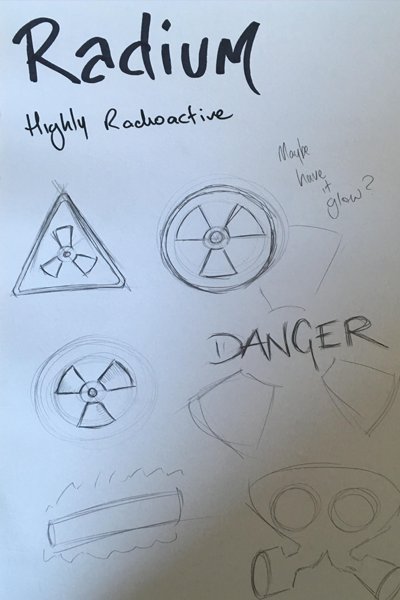 Radium
Highly Radioactive
Maybe
have
it
glow?
DANGER